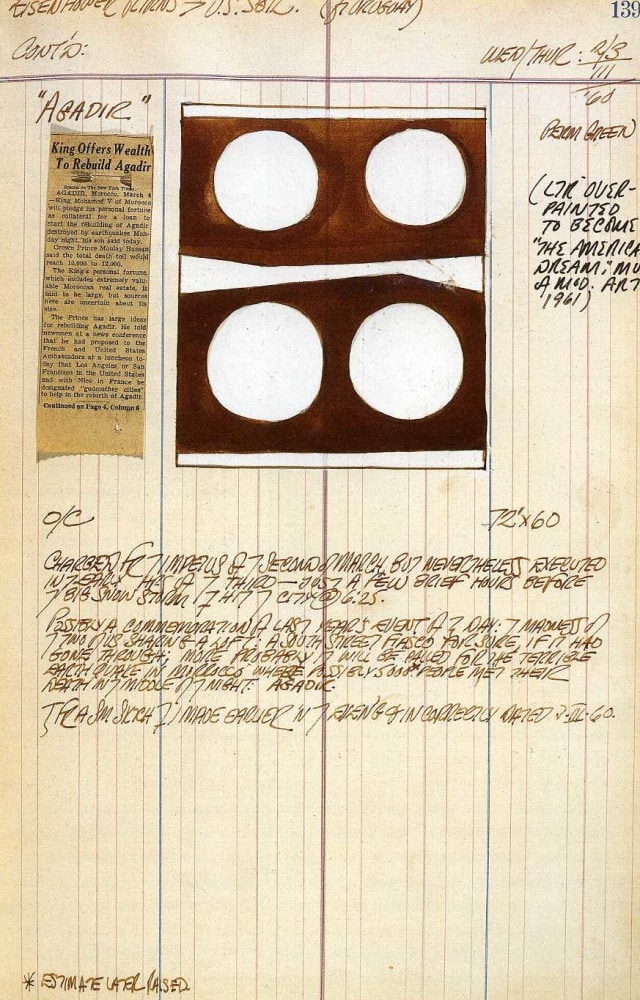 EISENHOWER RETURNS → U.S. SOIL. (FR URUGUAY)
139
CONT'D:
WED/THUR: 2/3
III
'60
"AGADIR"
King Offers Wealth
To Rebuild Agadir
Special to The New York Times
AGADIR, Morocco, March 4
—King Mohammed V of Morocco
will pledge his personal fortune
as collateral for a loan to
start the rebuilding of Agadir
destroyed by earthquakes Mon-
day night, his son said today.
Crown Prince Moulay Hassan
said the total death toll would
reach 10,000 to 12,000.
The King's personal fortune,
which includes extremely valu-
able Moroccan real estate, is
said to be large, but sources
here are uncertain about its
size.
The Prince has large ideas
for rebuilding Agadir. He told
newsmen at a news conference
that he had proposed to the
French and United States
Ambassadors at a luncheon to-
day that Los Angeles or San
Francisco in the United States
and with Nice in France be
designated "godmother cities"
to help in the rebirth of Agadir.
Continued on Page 4, Column 6
PERM GREEN)
(LTR OVER-
PAINTED
TO BECOME
"THE AMERICA
DREAM": MU
OF MOD. ART
1961)
O/C
72"x60
CHARGED FR 7 IMPETUS OF 7 SECOND OF MARCH, BUT NEVERTHELESS EXECUTED
IN 7 EARLY HRS OF 7 THIRD — JUST A FEW BRIEF HOURS BEFORE
7 BIG SNOW STORM (7 HIT 7 CITY @ 6:25.
POSSIBLY A COMMEMORATION OF LAST YEAR'S EVENT OF 7 DAY: 7 MADNESS OF
7 TWO OF US SHARING A LOFT: A SOUTH STREET FIASCO FOR SURE, IF IT HAD
GONE THROUGH; MORE PROBABLY IT WILL BE NAMED FOR THE TERRIBLE
EARTH QUAKE IN MOROCCO WHERE POSSIBLY 5000* PEOPLE MET THEIR
DEATH IN 7 MIDDLE OF 7 NIGHT: AGADIR.
(FR A SM SKETCH 7 I MADE EARLIER IN 7 EVENING & INCORRECTLY DATED 3-III-60.
* ESTIMATE LATER RAISED